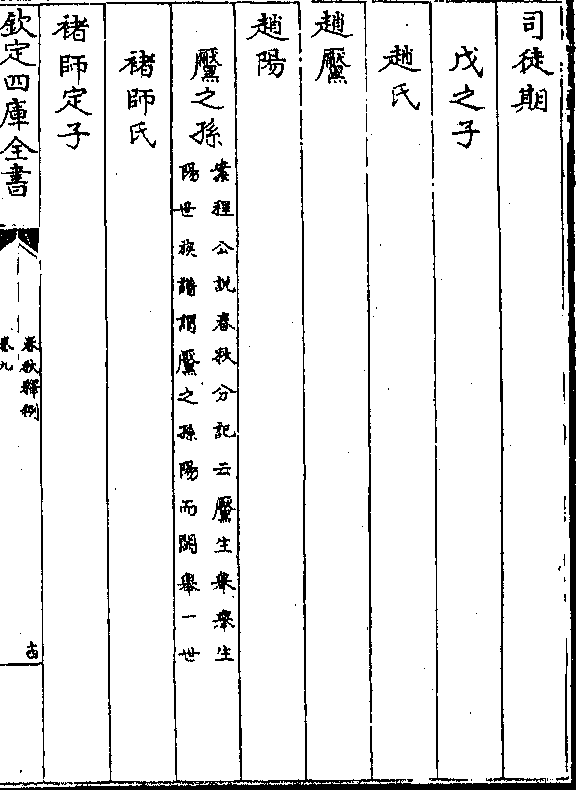 司徒期
戊之子
趙氏
趙黶
趙陽
黶之孫
案程公說春秋分記云黶生舉舉生
陽世族譜謂黶之孫陽而闕舉一世
褚師氏
褚師定子
欽定四庫全書
春秋釋例
卷九
十四